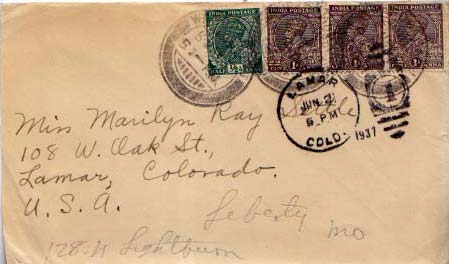 INDIA POSTAGE INDIA POSTAGE INDIA POSTAGE INDIA POSTAGE
LAMAR
JUN 2
5 PM
COLO.
1937
1
Miss Marilyn Ray
108 W. Oak St.,
Lamar, Colorado.
U. S. A.
Liberty Mo
128-N Lightburn